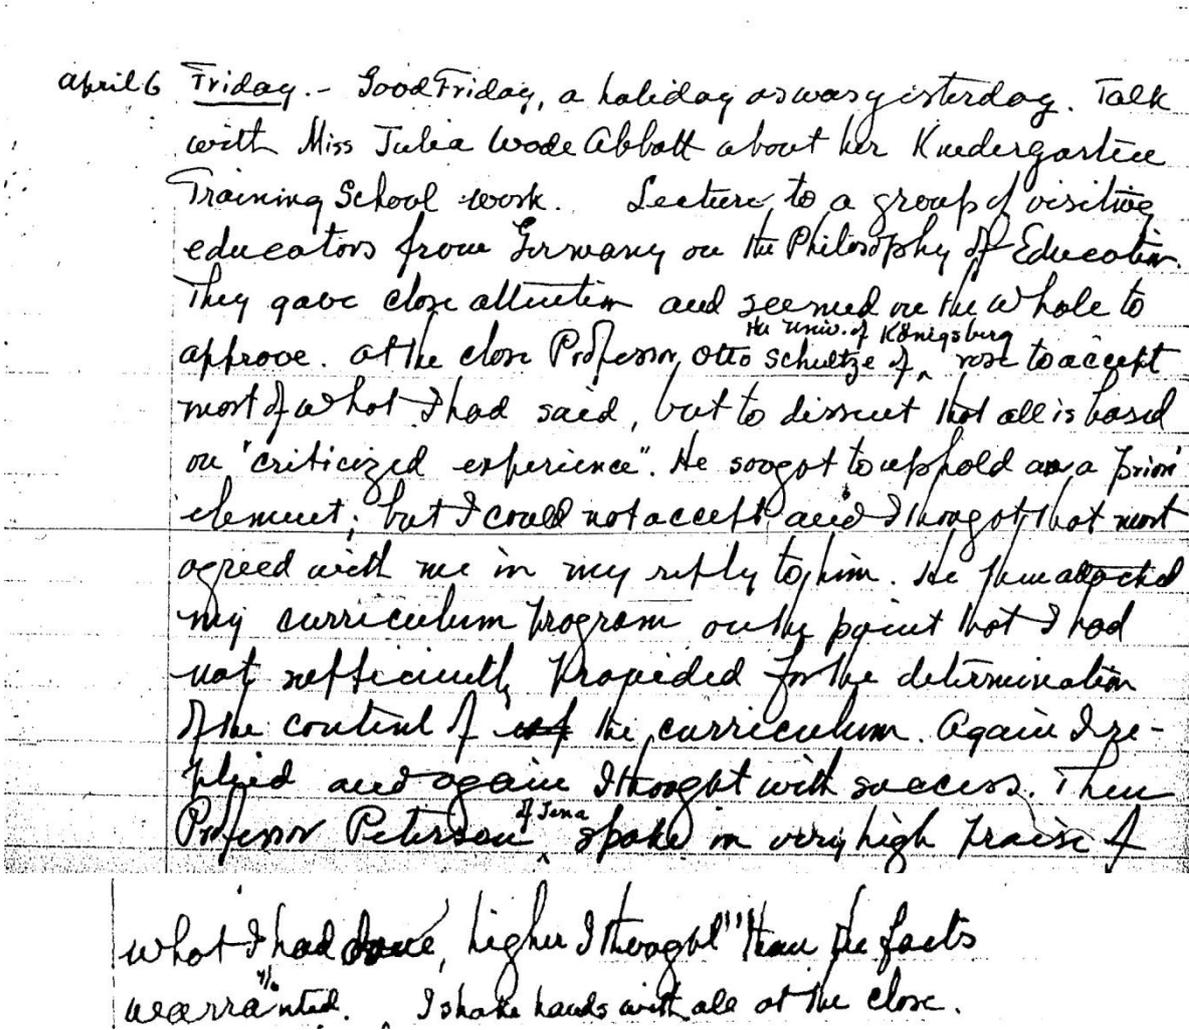 April 6 Friday. - Good Friday, a holiday as was yesterday. Talk
with Miss Julia Wade Abbott about her Kindergarten
Training School work. Lecture, to a group of visiting
educators from Germany on the Philosophy of Education.
They gave close attention and seemed on the whole to
the Univ. of Königsberg
approve. At the close Professor Otto Schultze of ^ rose to accept
most of what I had said, but to dissent that all is based
on "criticized experience". He sought to uphold an a priori
element; but I could not accept, and I thought that most
agreed with me in my reply to him. He then attacked
my curriculum program on the point that I had
not sufficiently provided for the determination
of the content of the curriculum. Again I re-
plied and again I thought with success. Then
Professor Petersen ^ of Jena spoke in very high praise of
what I had done, higher I thought than the facts
warranted. I shake hands with all at the close.